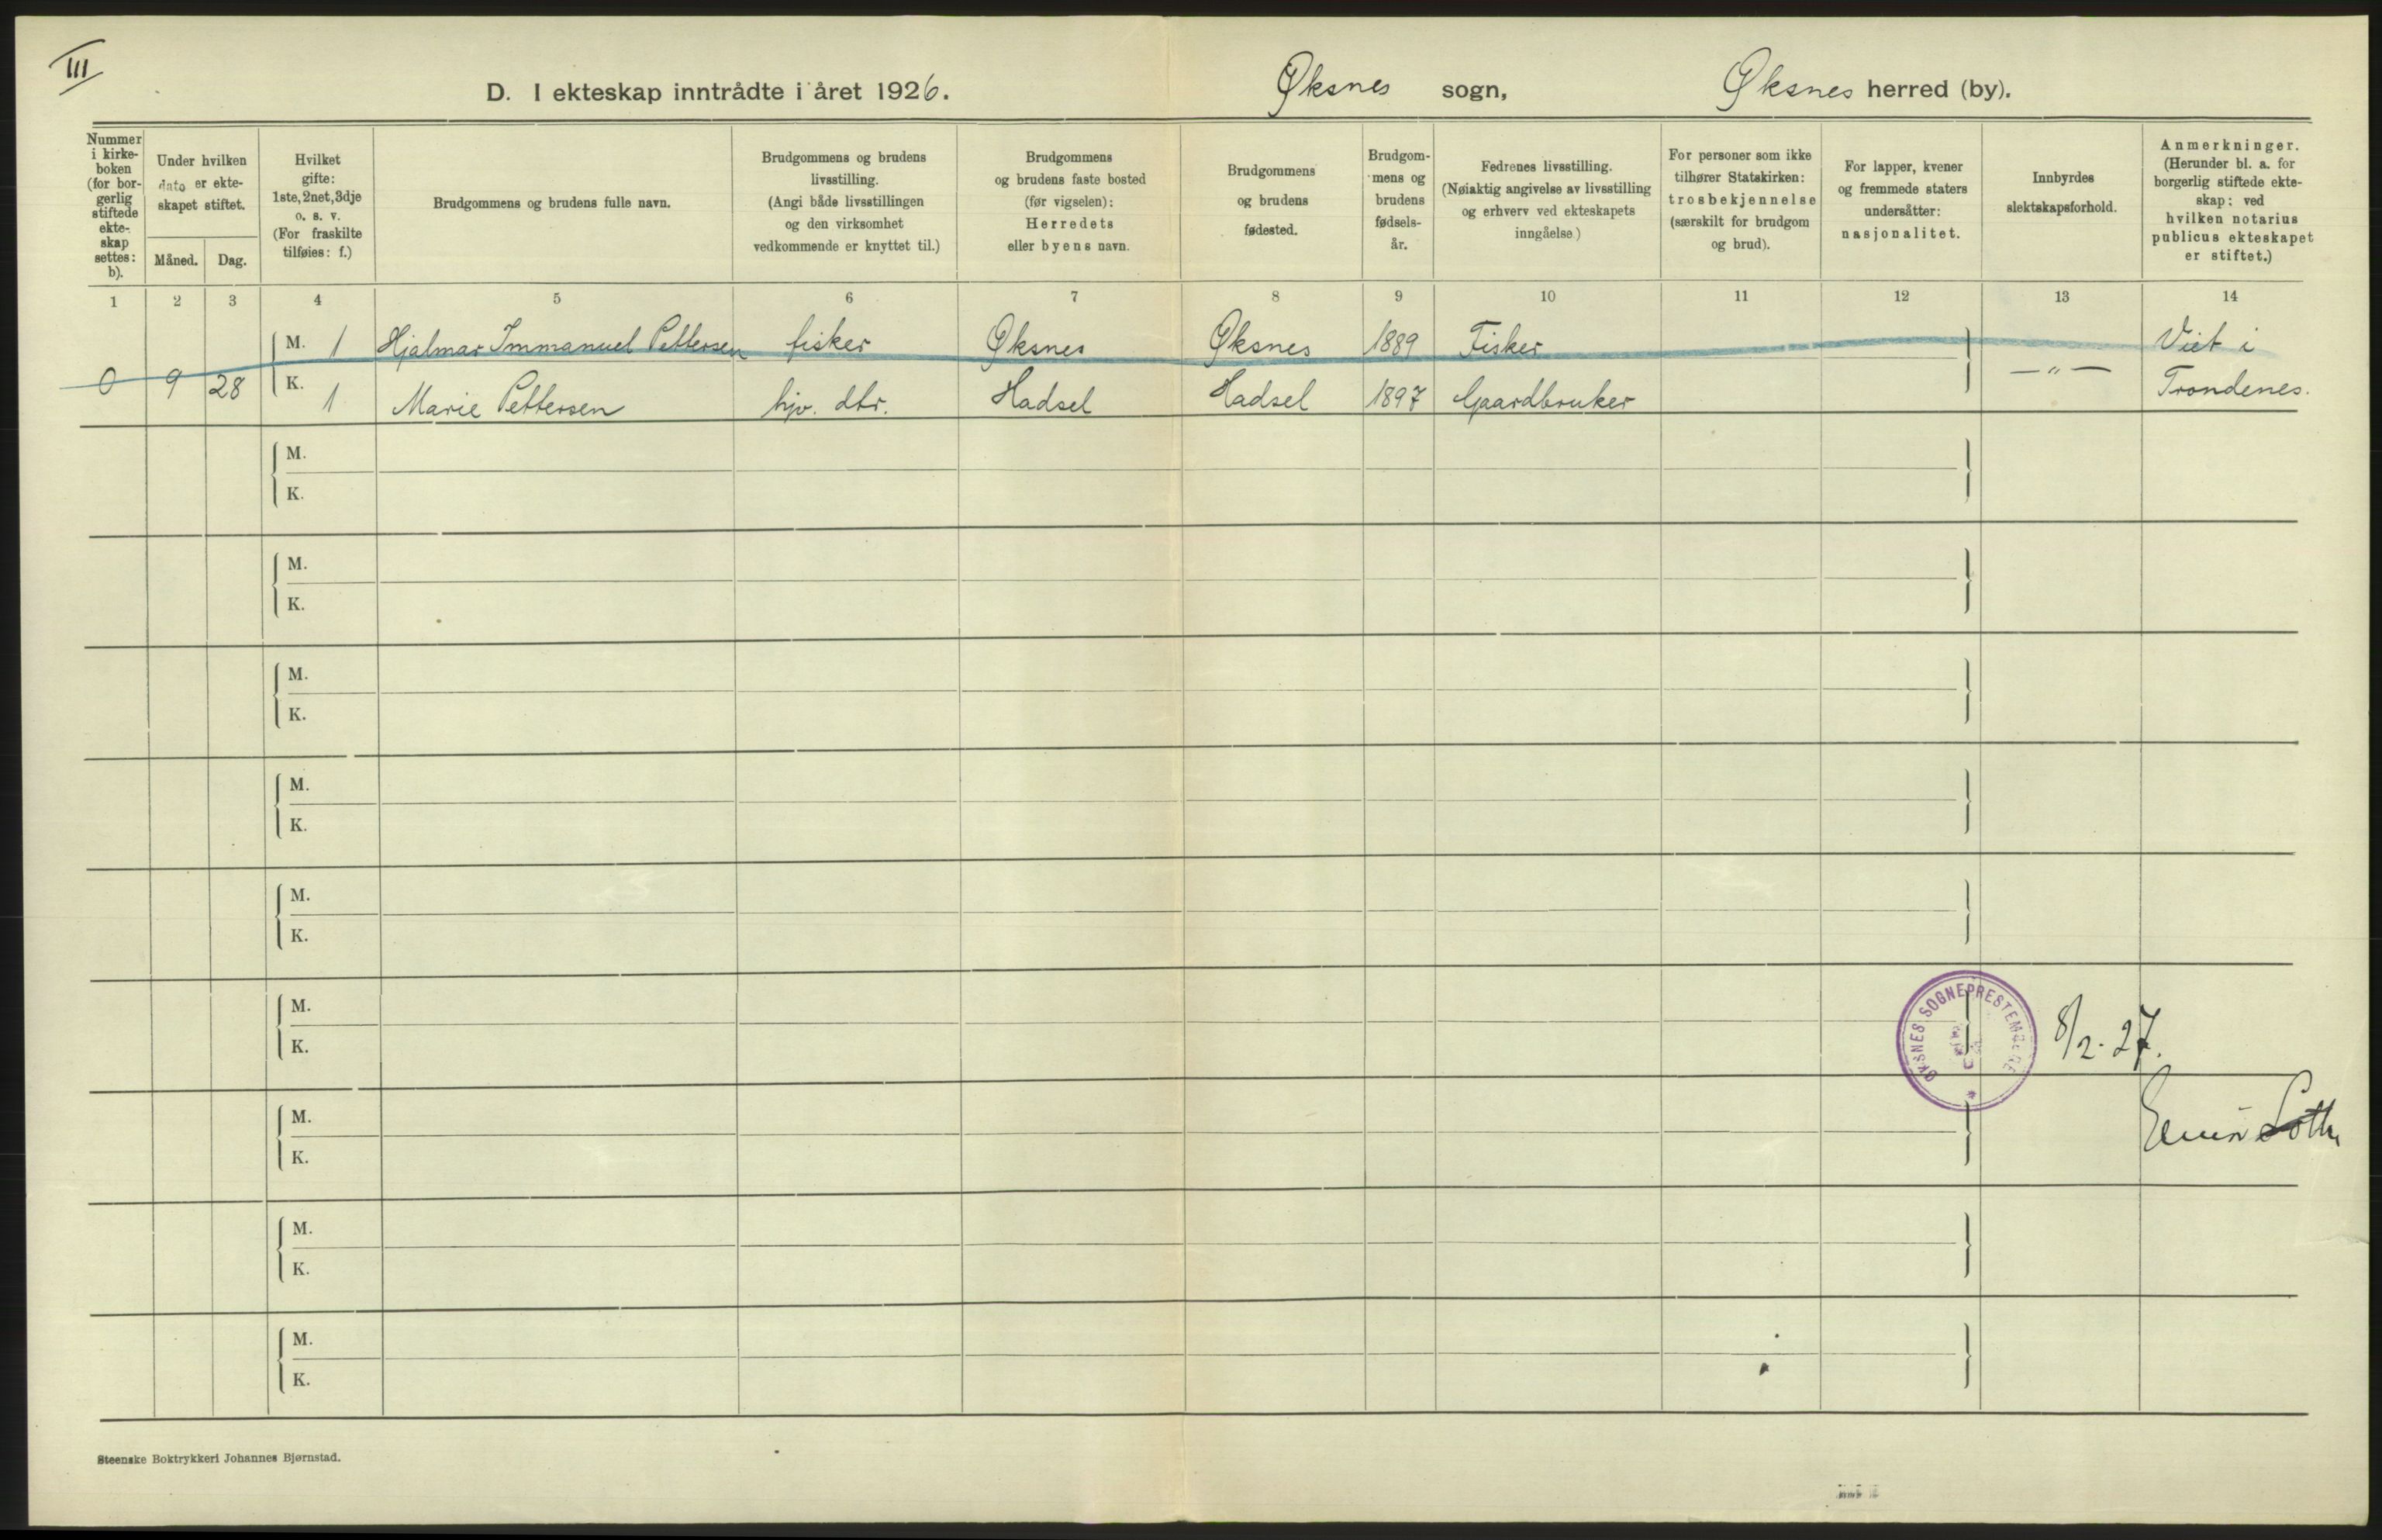 III
D. I ekteskap inntrådte i året 1926. Øksnes sogn, Øksnes herred (by).
Nummer
i kirke-
boken
(for bor-
gerlig
stiftede
ekte-
skap
settes:
b).
Under hvilken
dato er ekte-
skapet stiftet.
Måned. Dag.
Hvilket
gifte:
1ste, 2net, 3dje
o. s. v.
(For fraskilte
tilføies: f.)
Brudgommens og brudens fulle navn.
Brudgommens og brudens
livsstilling.
(Angi både livsstillingen
og den virksomhet
vedkommende er knyttet til.)
Brudgommens
og brudens faste bosted
(før vigselen):
Herredets
eller byens navn.
Brudgommens
og brudens
fødested.
Brudgom-
mens og
brudens
fødsels-
år.
Fedrenes livsstilling.
(Nøiaktig angivelse av livsstilling
og erhverv ved ekteskapets
inngåelse.)
For personer som ikke
tilhører Statskirken:
trosbekjennelse
(særskilt for brudgom
og brud).
For lapper, kvener
og fremmede staters
undersåtter:
nasjonalitet.
Innbyrdes
slektskapsforhold.
Anmerkninger.
(Herunder bl. a. for
borgerlig stiftede ekte-
skap: ved
hvilken notarius
publicus ekteskapet
er stiftet.)
1 2 3 4 5 6 7 8 9 10 11 12 13 14
M. 1 Hjalmar Immanuel Pettersen fisker Øksnes Øksnes 1889 Fisker Viet i
0 9 28 K. 1 Marie Pettersen hjv. dtr. Hadsel Hadsel 1897 Gaardbruker — " — Trondenes.
M.
K.
M.
K.
M.
K.
M.
K.
M.
K.
M.
K.
M.
K.
M.
K.
M.
K.
ØKSNES SOGNEPRESTEMBEDE
8/2-27.
Steenske Boktrykkeri Johannes Bjørnstad.